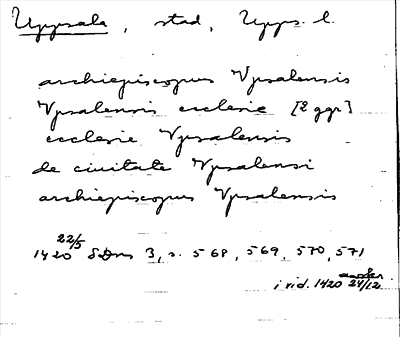 Uppsala, stad, Upps. l.
archiepiscopus Vpsalensis
Vpsalensis ecclesie [2 ggr]
ecclesie Vpsalensis
de ciuitate Vpsalensi
archiepiscopus Vpsalensis
1420 22/5 SDns 3, s. 568, 569, 570, 571
i vid. 1420 24/12